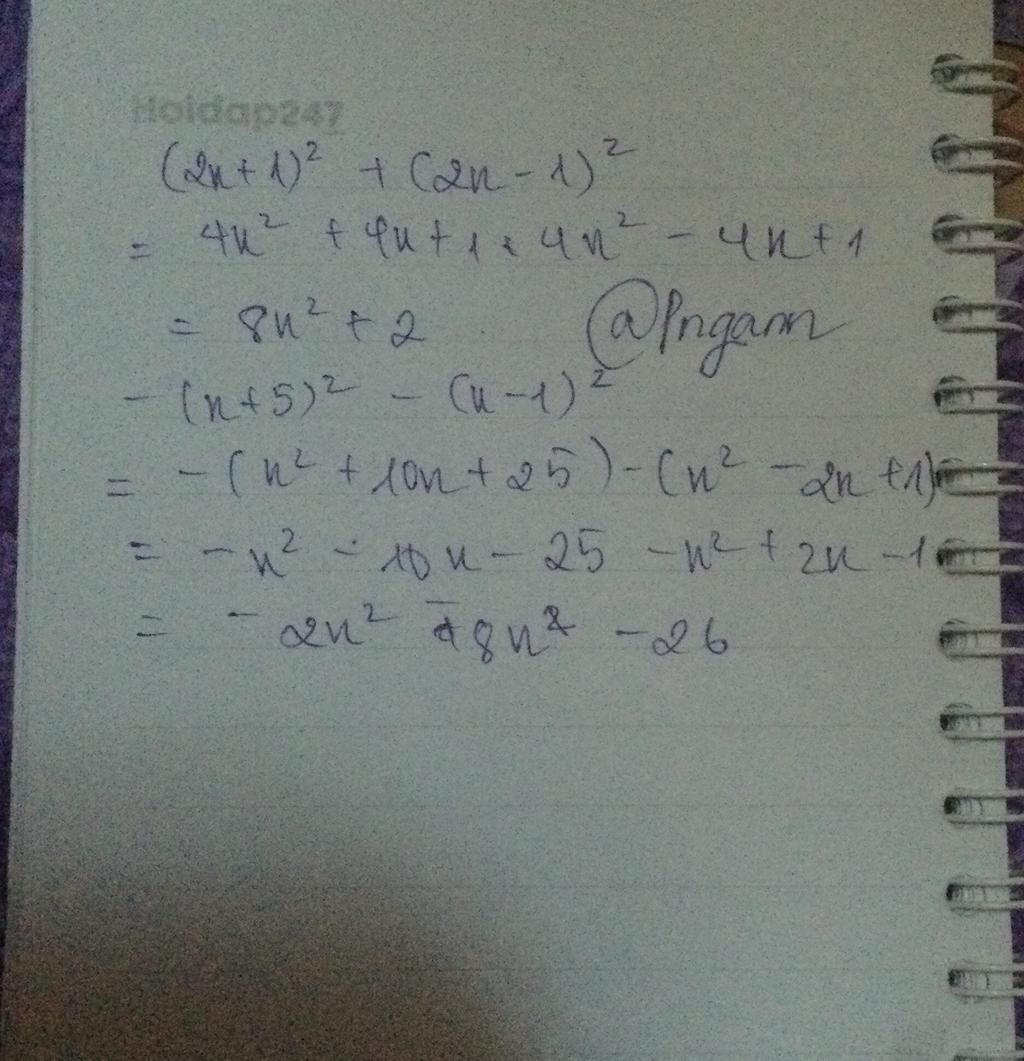 Hoidap247
(2x+1)² + (2x-1)²
= 4x² + 4x+1+4x² - 4x+1
= 8x² + 2 @Pngann
-(x+5)² - (x-1)²
= -(x² + 10x+25) - (x² - 2x+1)
= -x² - 10x - 25 - x² + 2x - 1
= -2x² - 8x - 26